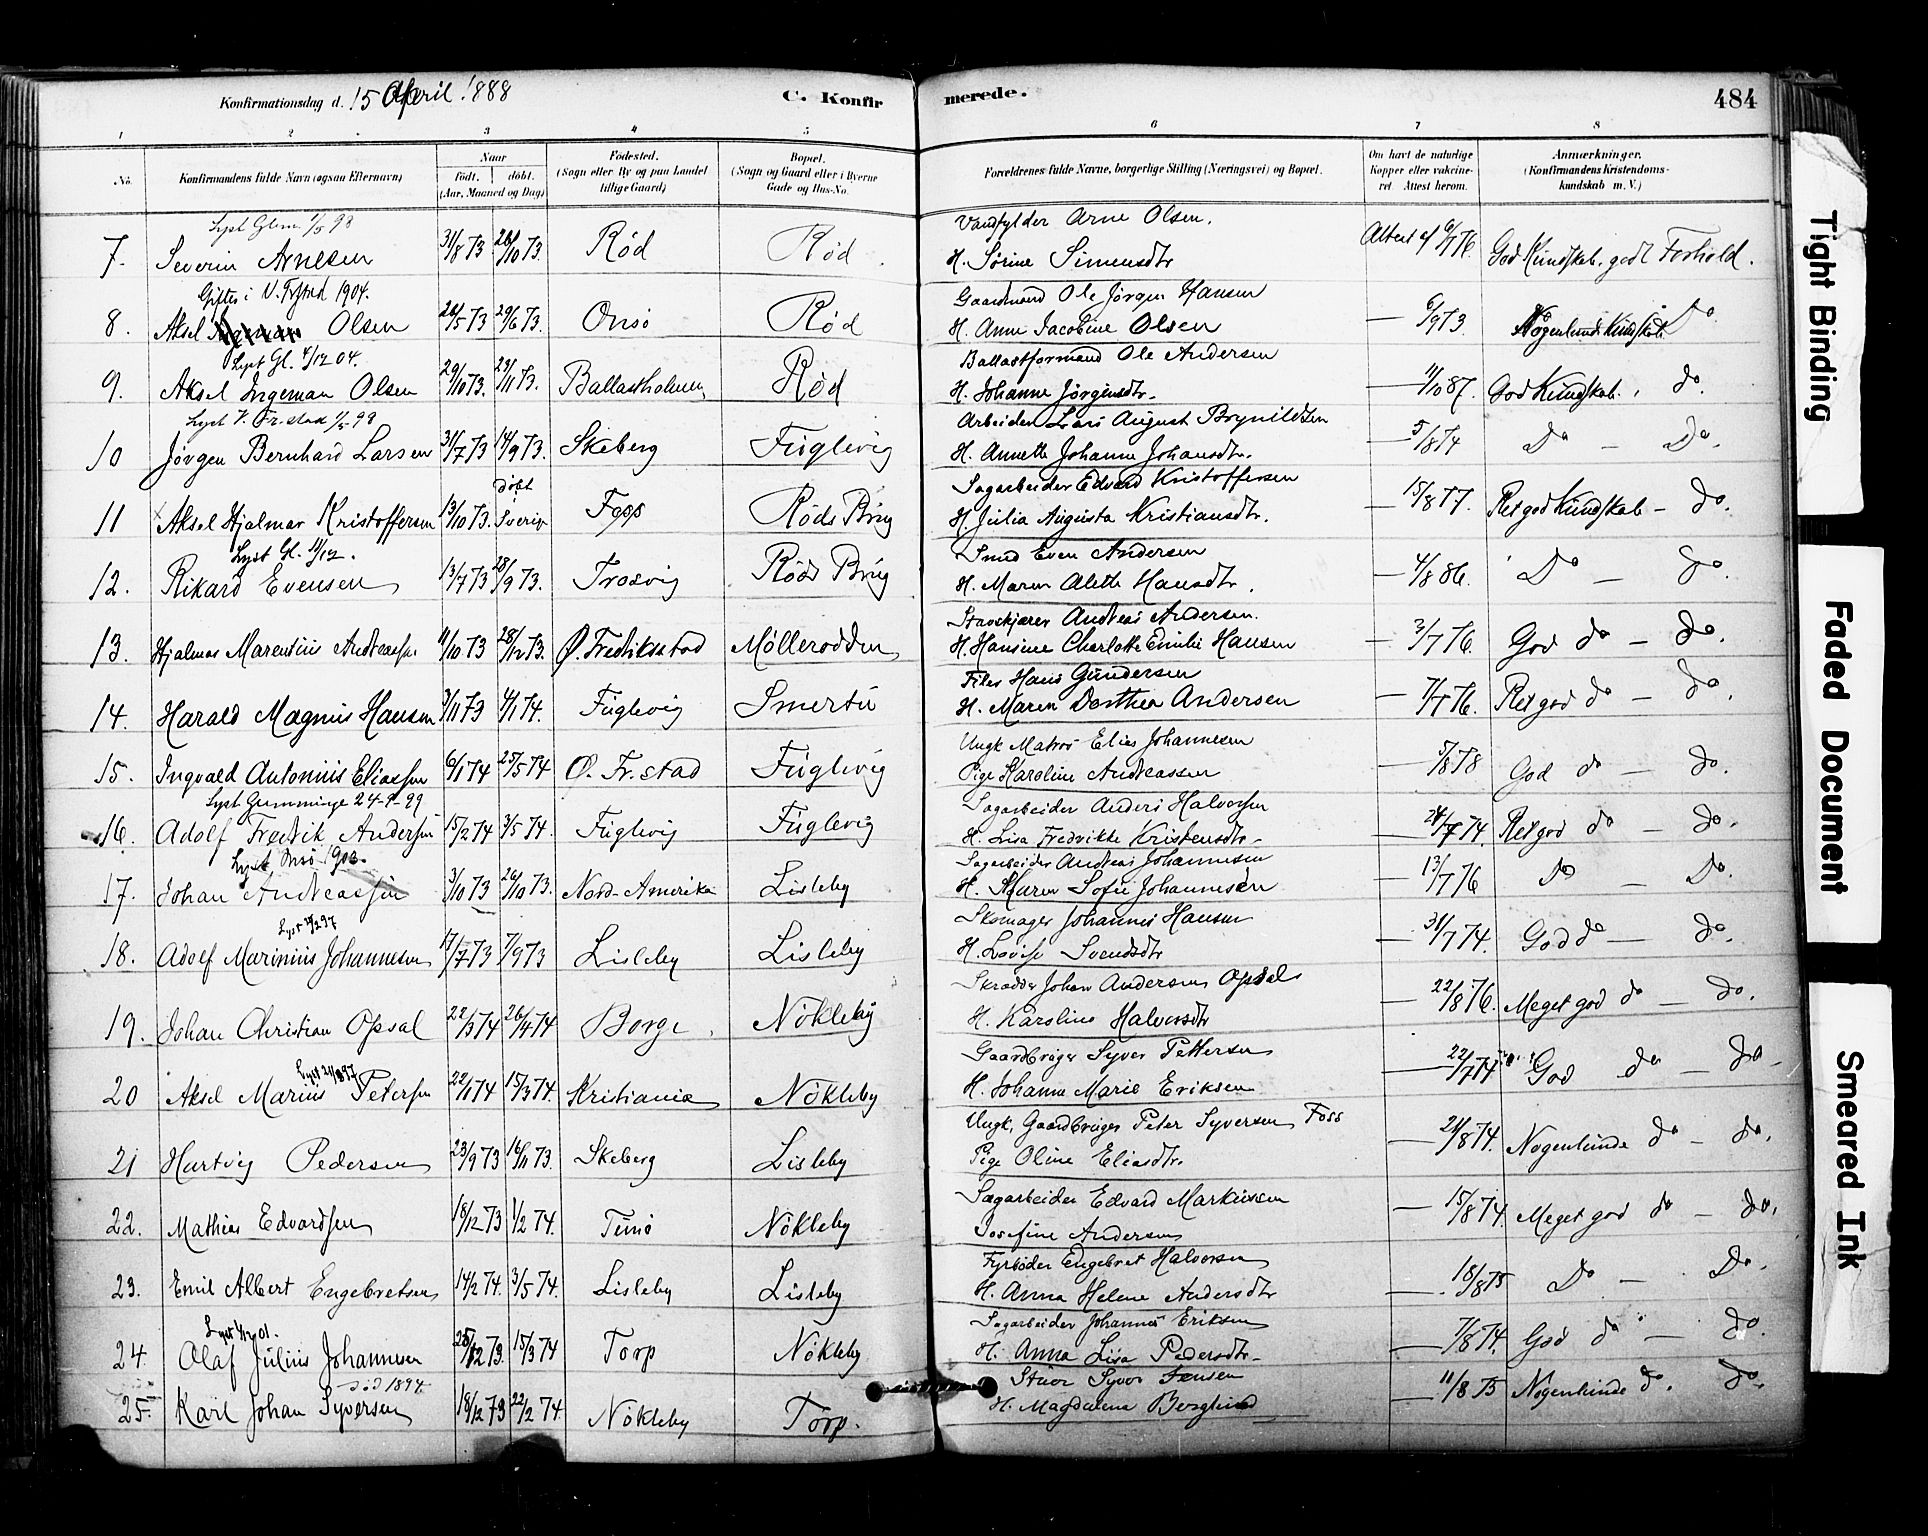 Konfirmationsdag d. 15 April 1888 C. Konfirmerede. 484
1 2 3 4 5 6 7 8
No. Konfirmandens fulde Navn (ogsaa Efternavn) Naar født. døbt. (Aar, Maaned og Dag) Fødested. (Sogn eller By og paa Landet tillige Gaard) Bopæl. (Sogn og Gaard eller i Byerne Gade og Hus-No. Forældrenes fulde Navne, borgerlige Stilling (Næringsvei) og Bopæl. Om havt de naturlige Kopper eller vaccineret. Attest herom. Anmærkninger. (Konfirmandens Kristendomskundskab m. V.)
Lyst Glem. 1/5 98
Vandfylder Arne Olsen.
7. Severin Arnesen 31/8 73 26/10 73. Rød Rød. H. Sørine Simensdtr 6/7 76. God Kundskab, godt Forhold.
Giftes i V. Frstad 1904.
Gaardmand Ole Jørgen Hansen
8. Aksel Olsen 24/5 73 29/6 73. Onsø Rød H. Anne Jacobine Olsen — 6/9 73. Nogenlunde Kundskab. Do
Lyst Gl. 4/12 04.
Ballastformand Ole Andersen
9. Aksel Ingeman Olsen 20/10 73. 23/11 73. Ballastholmen Rød H. Johanne Jørgensdtr. — 11/10 87. God Kundskab. do.
Lyst V. Fr.stad 1/5 98
Arbeider Lars August Brynildsen
10 Jørgen Bernhard Larsen 31/7 73 14/9 73. Skeberg Fuglevig H. Annette Johanne Johansdtr. — 5/8 74 Do — Do.
døbt
Sagarbeider Edvard Kristoffersen
11 Aksel Hjalmar Kristoffersen 13/10 73. i Sverig Foss Røds Brug H. Julia Augusta Kristiansdtr. — 15/8 77. Ret god Kundskab — do.
Lyst Gl. 11/12.
Smed Even Andersen
12. Rikard Evensen 13/7 73 28/9 73. Trosvig Røds Brug H. Maren Alette Hansdtr. — 4/8 86. Do — do.
Stavskjærer Andreas Andersen.
13. Hjalmar Marentius Andreassen 11/10 73 28/12 73. Ø. Fredriksstad Møllerodden H. Hansine Charlotte Emilie Hansen — 3/7 76. God do — do.
Hans Gundersen
14. Harald Magnus Hansen 3/11 73 4/1 74. Fuglevig Smertu H. Maren Dorthea Andersen — 7/7 76. Ret god do — do.
Ungk Matros Elias Johannesen
15. Ingvald Antonius Eliassen 6/1 74 25/5 74 Ø. Fr.stad Fuglevig Pige Karoline Andreassen — 5/8 78 God do — do.
Lyst Gumminge 24-9-99
Sagarbeider Anders Halvorsen
16. Adolf Fredrik Andersen 15/2 74 3/5 74. Fuglevig Fuglevig H. Lisa Fredrikke Kristensdtr. — 24/7 74. Ret god do — do.
Lyst Onsø 1900.
Sagarbeider Andreas Johannesen
17. Johan Andreassen 3/10 73 26/10 73. Nord-Amerika Lisleby H. Karen Sofie Johannesen — 13/7 76 Do — Do.
Lyst 97
Skomager Johannes Hansen
18. Adolf Marinius Johannesen 17/7 73 7/9 73 Lisleby Lisleby H. Lovise Svendsdtr — 31/7 74. God do — do.
Skrædder Johan Andersen Opsal
19. Johan Christian Opsal 22/3 74 26/4 74 Borge Nökleby H. Karoline Halvorsdtr — 22/8 76. Meget god do — do.
Lyst 97
Gaardbruger Syver Pettersen
20 Aksel Marius Petersen 22/1 74 15/3 74. Kristiania Nökleby H. Johanne Marie Eriksen — 22/7 74 God do — do.
Ungk. Gaardbruger Peter Syversen Foss
21 Hartvig Pedersen 23/9 73 16/11 73. Skeberg Lisleby Pige Oline Eliasdtr. — 21/8 74. Nogenlunde do — do.
Sagarbeider Edvard Markussen
22. Mathias Edvardsen 18/12 73 1/2 74. Tunø Nökleby Josefine Andersen — 15/8 74. Meget god do — do.
Fyrbøder Engebret Halvorsen
23. Emil Albert Engebretsen 14/2 74. 3/5 74. Lisleby Lisleby H. Anna Helene Andersdtr — 18/8 75 Do — Do.
Lyst 4/12 01.
Sagarbeider Johannes Eriksen
24. Olaf Julius Johannesen 25/12 73. 15/3 74 Torp Nökleby H. Anna Lisa Pedersdtr. — 7/8 74. God do — do.
død 1894
Stuer Syver Jensen
25. Karl Johan Syversen 18/12 73 22/2 74. Nökleby Torp. H. Magdalena Berglund — 11/8 75 Nogenlunde do. do.
Tight Binding
Faded Document
Smeared Ink